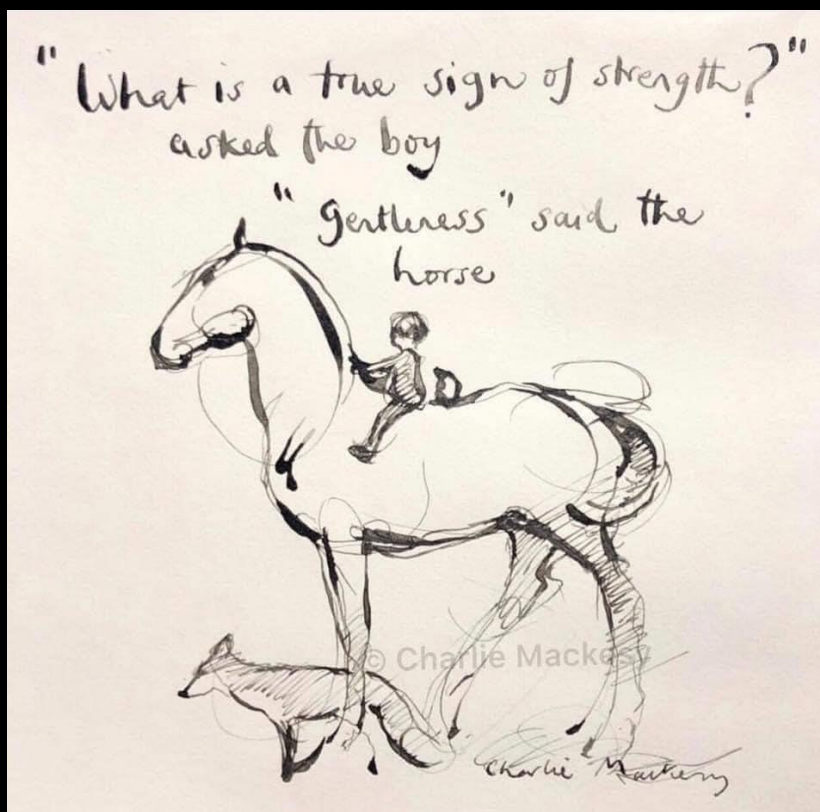 "What is a true sign of strength?"
asked the boy
"gentleness" said the
horse
© Charlie Mackesy
Charlie Mackesy